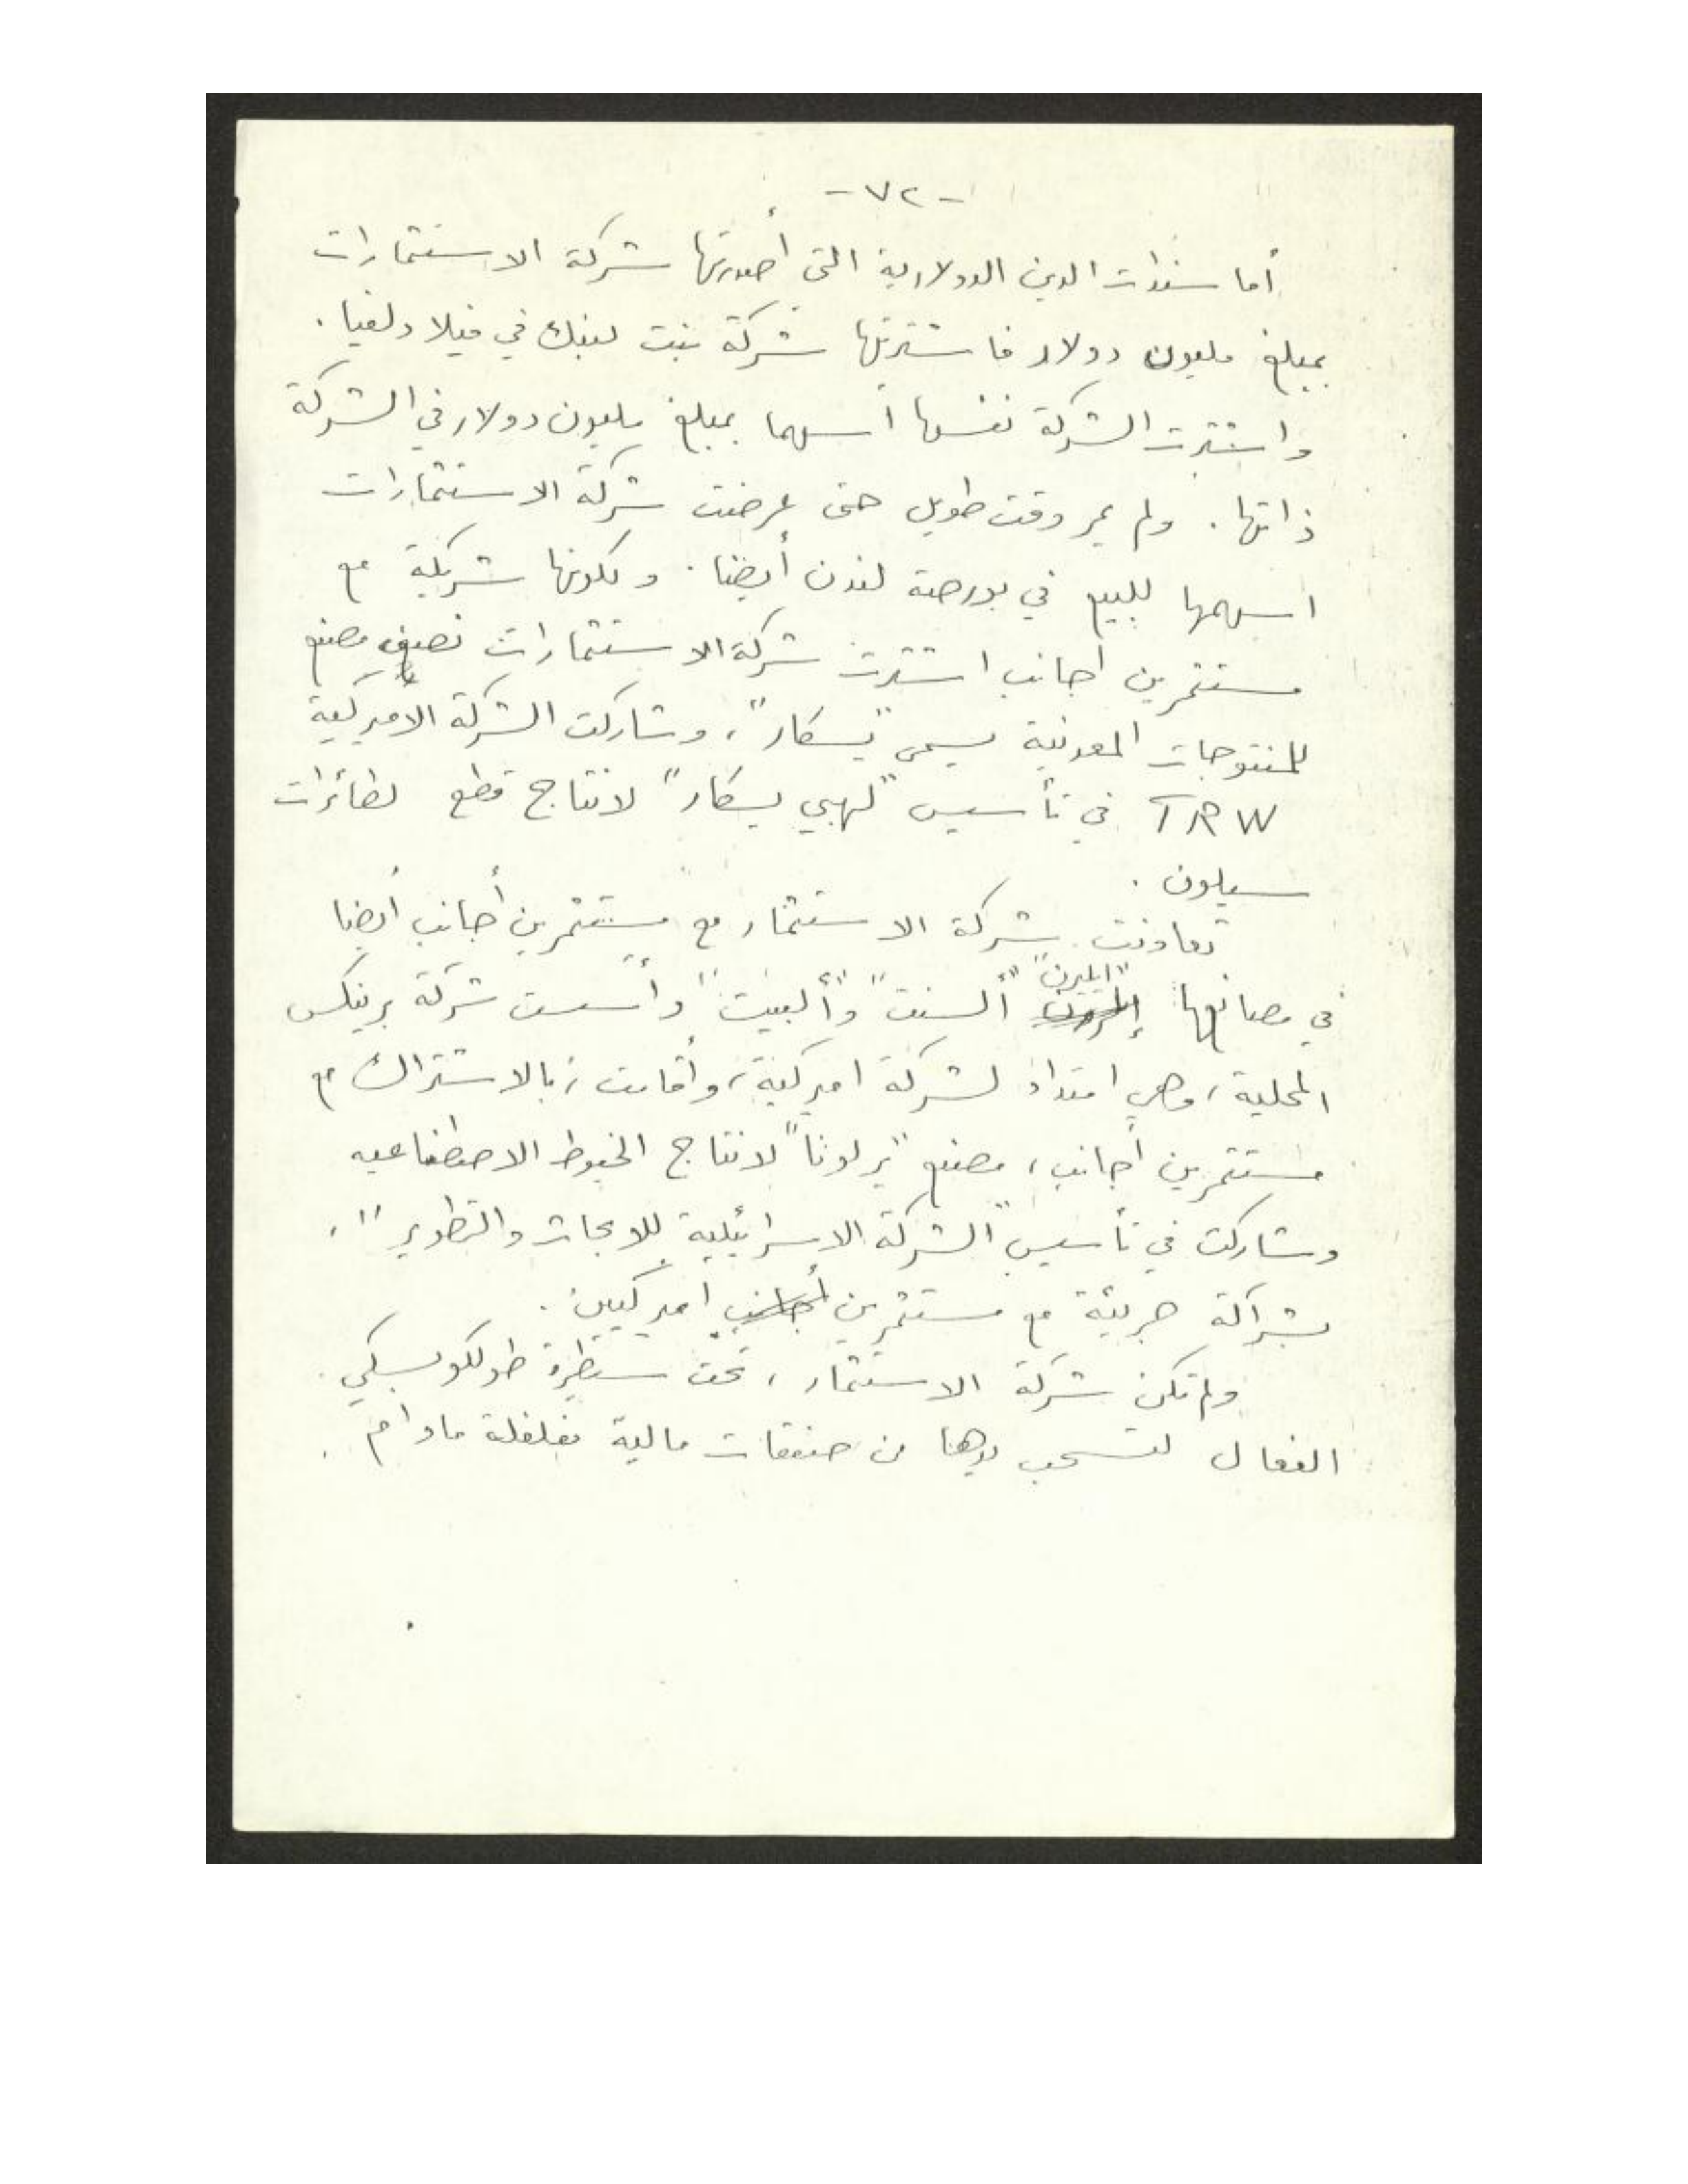 - ٧٢ -
أما سندات الدين الدولارية التي أصدرتها شركة الاستثمارات
بمبلغ مليون دولار فاشترتها شركة بنت لبنك في فيلادلفيا .
واشترت الشركة نفسها أسهما بمبلغ مليون دولار في الشركة
ذاتها . ولم يمر وقت طويل حتى عرضت شركة الاستثمارات
اسهمها للبيع في بورصة لندن أيضا . ولكونها شريكة مع
مستثمرين أجانب اشترت شركة الاستثمارات نصف مصنع
للمنتوجات المعدنية يسمى "يسكار" ، وشاركت الشركة الاميركية
TRW في تأسيس "لهبي يسكار" لانتاج قطع لطائرات
سيلون .
تعاونت شركة الاستثمار مع مستثمرين أجانب أيضا
في مصانعها "اليرن" "ألسنت" و"ألبيت" وأسست شركة برينكس
المحلية ، وهي امتداد لشركة اميركية ، وأقامت ، بالاشتراك مع
مستثمرين أجانب ، مصنع "يرلونا" لانتاج الخيوط الاصطناعيه
وشاركت في تأسيس "الشركة الاسرائيلية للابحاث والتطوير" ،
بشراكة جزئية مع مستثمرين أجانب اميركيين .
ولم تكن شركة الاستثمار ، تحت سيطرة طولكوبسكي
الفعال لتسحب يدها من صفقات مالية مغلغلة مادام .